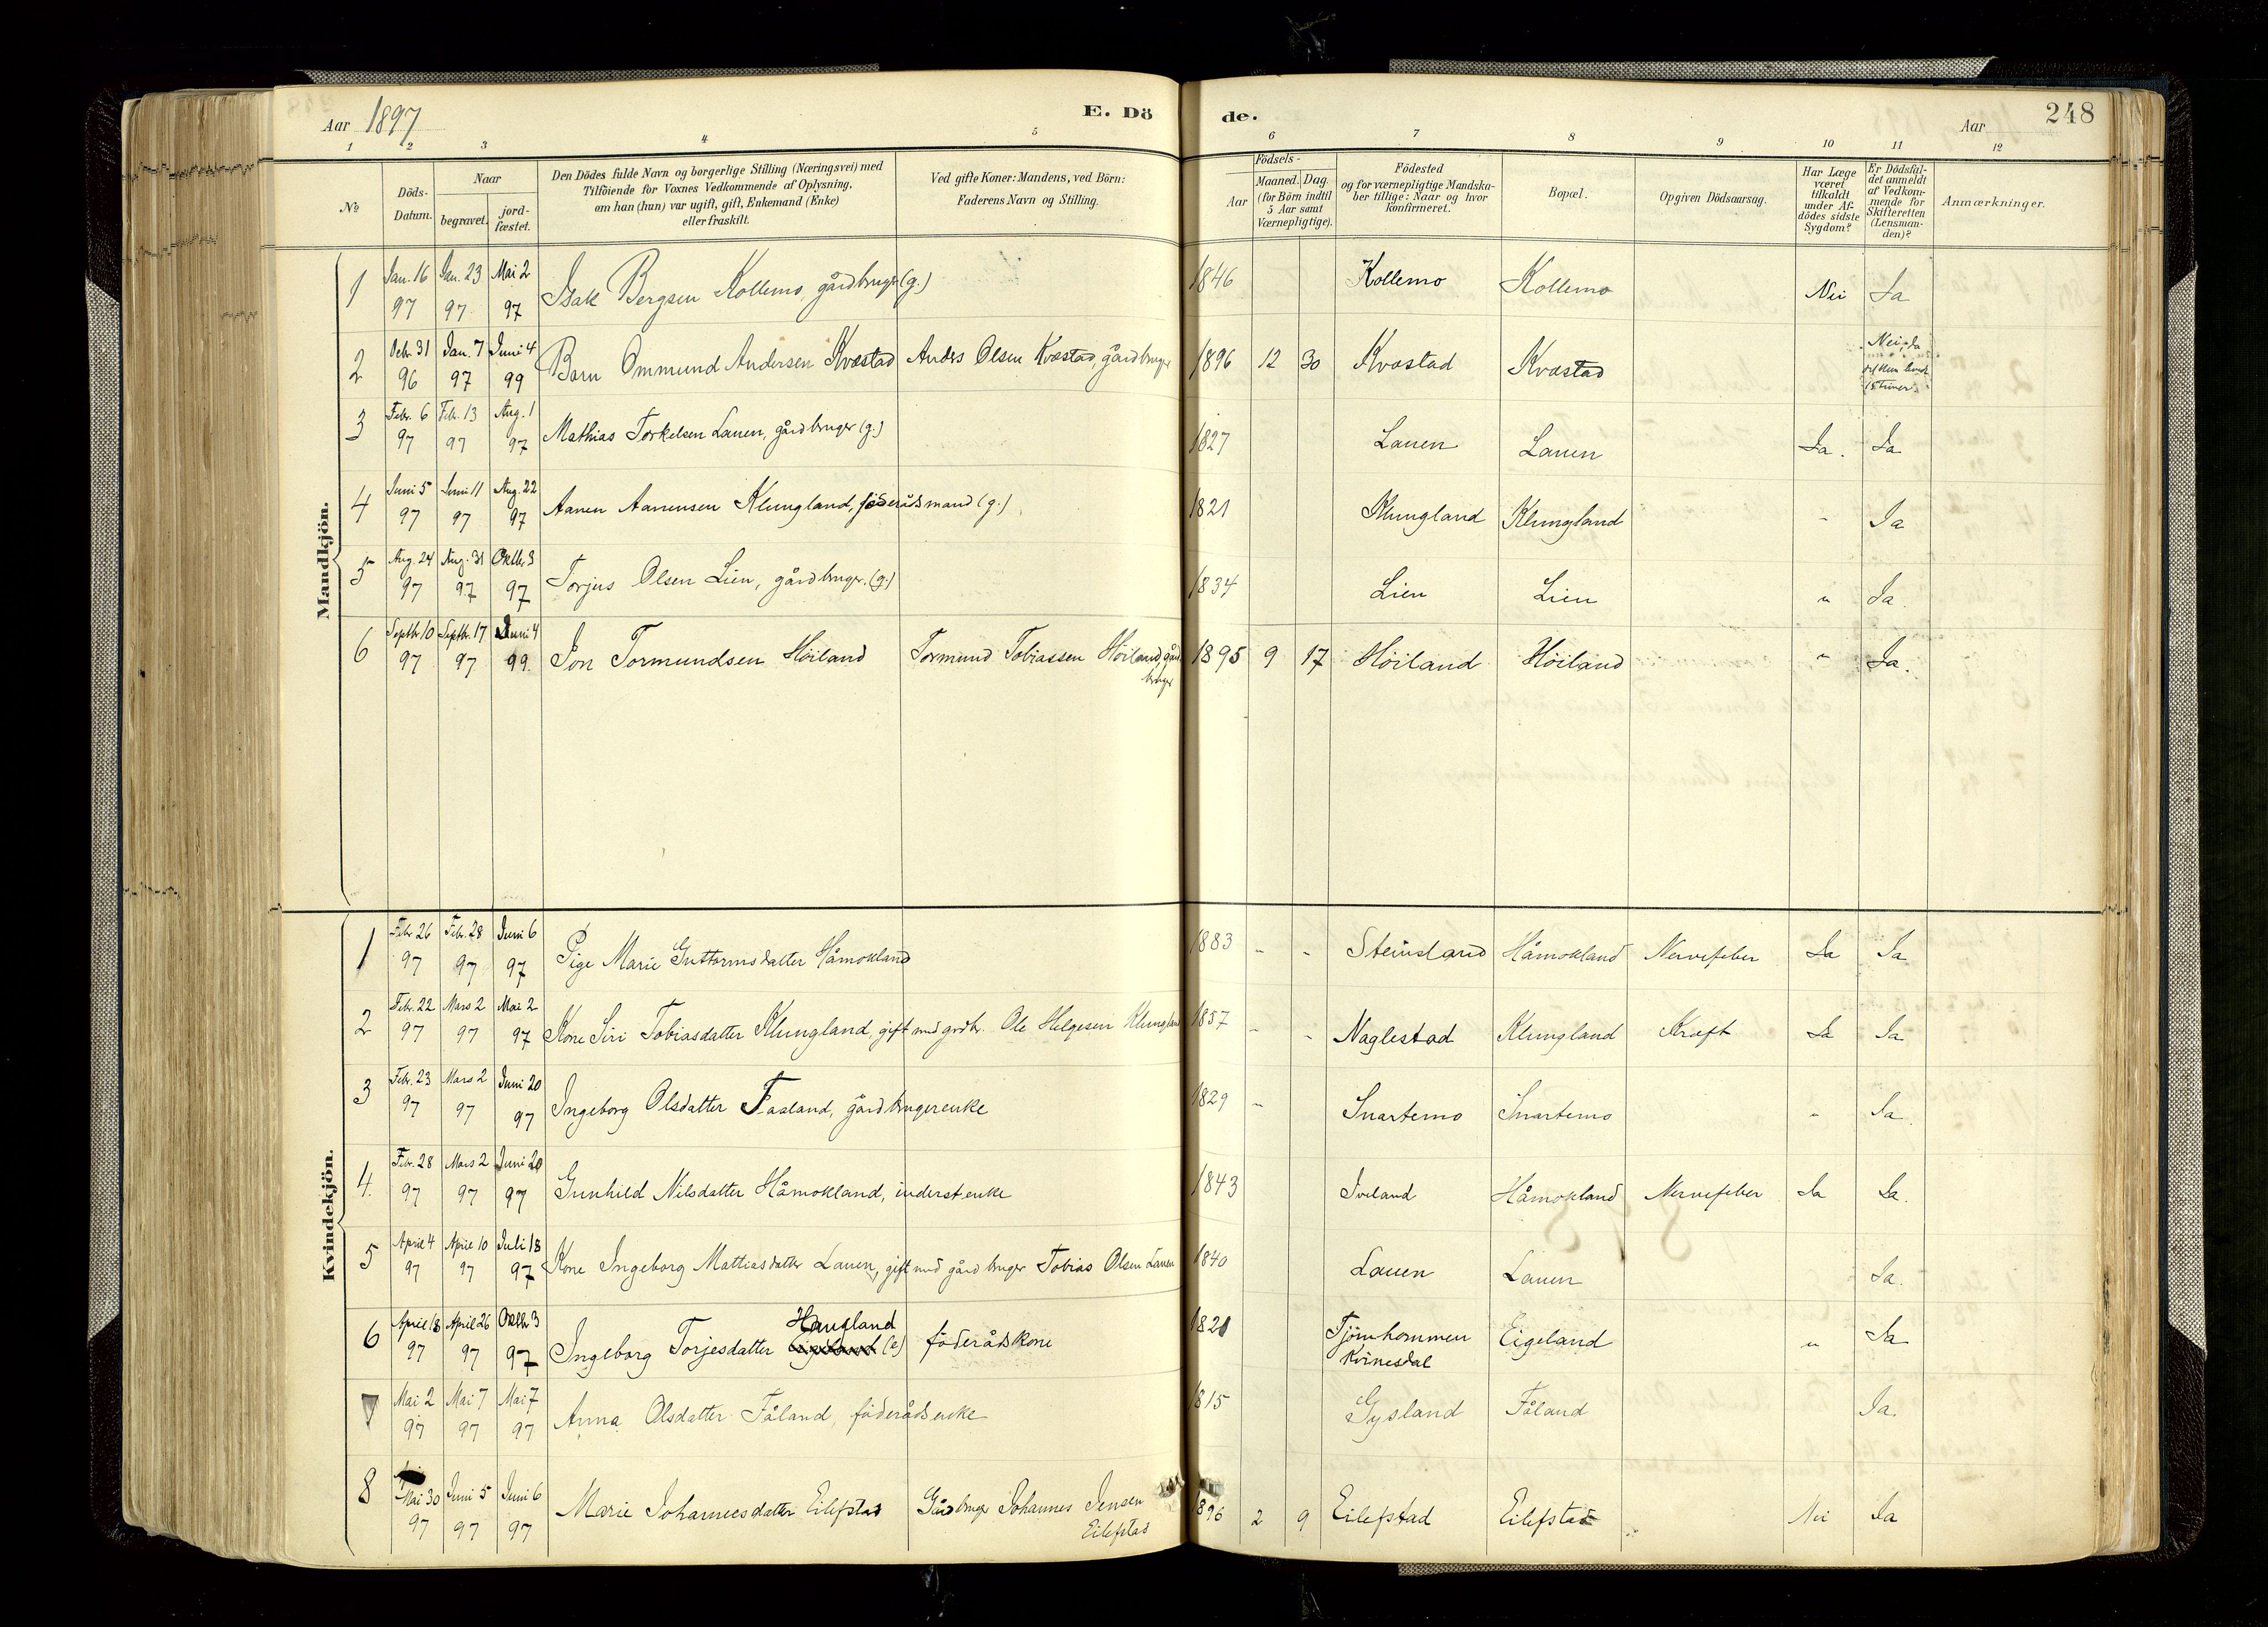 Aar 1897
E. Dö
de.
Aar
248
1 2 3 4 5 6 7 8 9 10 11 12
№
Döds-
Datum.
Naar
begravet.
jord-
fæstet.
Den Dödes fulde Navn og borgerlige Stilling (Næringsvei) med
Tilföiende for Voxnes Vedkommende af Oplysning,
om han (hun) var ugift, gift, Enkemand (Enke)
eller fraskilt.
Ved gifte Koner: Mandens, ved Börn:
Faderens Navn og Stilling.
Födsels-
Aar
Maaned. Dag.
(for Börn indtil
5 Aar samt
Værnepligtige).
Födested
og for værnepligtige Mandska-
ber tillige: Naar og hvor
konfirmeret.
Bopæl.
Opgiven Dödsaarsag.
Har Læge
været
tilkaldt
under Af-
dödes sidste
Sygdom?
Er Dödsfal-
det anmeldt
af Vedkom-
mende for
Skifteretten
(Lensman-
den)?
Anmærkninger.
Mandkjön.
1 Jan. 16 Jan. 23 Mai 2
97 97 97
Isak Bergsen Kollemo, gårdbruger (g.) 1846 Kollemo Kollemo Nei Ja
2 Debr. 31 Jan. 7 Juni 4
96 97 99
Barn Ommund Andersen Kvæstad Anders Olsen Kvæstad, gårdbruger 1896 12 30 Kvæstad Kvæstad Nei, da
3 Febr. 6 Febr. 13 Aug. 1
97 97 97
Mathias Torkelsen Lauen, gårdbruger (g.) 1827 Lauen Lauen Ja. Ja
4 Juni 5 Juni 11 Aug. 22
97 97 97
Aanen Aanensen Klungland, föderådsmand (g.) 1821 Klungland Klungland " Ja
5 Aug. 24 Aug. 31 Oktbr. 3
97 97 97
Torjus Olsen Lien, gårdbruger. (g.) 1834 Lien Lien " Ja.
6 Septbr. 10 Septbr. 17 Juni 4
97 97 99.
Jon Tormundsen Höiland Tormund Tobiassen Höiland, gård
bruger
1895 9 17 Höiland Höiland " Ja.
Kvindekjön.
1 Febr. 26 Febr. 28 Juni 6
97 97 97
Pige Marie Guttormsdatter Håmokland 1883 - - Steinsland Håmokland Nervefeber Ja Ja
2 Febr. 22 Mars 2 Mai 2
97 97 97
Kone Siri Tobiasdatter Klungland, gift med grdbr. Ole Helgesen Klungland 1857 - - Naglestad Klungland Kræft Ja Ja
3 Febr. 23 Mars 2 Juni 20
97 97 97
Ingeborg Olsdatter Fasland, gårdbrugerenke 1829 - Snartemo Snartemo " Ja.
4. Febr. 28 Mars 2 Juni 20
97 97 97
Gunhild Nilsdatter Håmokland, inderstenke 1843 Iveland Håmokland Nervefeber Ja Ja.
5 April 4 April 10 Juli 18
97 97 97
Kone Ingeborg Mathiasdatter Lauen, gift med gårdbruger Tobias Olsen Lauen 1840 Lauen Lauen Ja.
6 April 18 April 26 Oktbr 3
97 97 97
Haugland
Ingeborg Torjesdatter (e) föderådskone 1821 Tjömhommen
Kvinesdal
Eigeland " Ja
7 Mai 2 Mai 7 Mai 7
97 97 97
Anna Olsdatter Fåland, föderådsenke 1815 Gysland Fåland Ja.
8 Mai 30 Juni 5 Juni 6
97 97 97
Marie Johannesdatter Eilefstad Gårdbruger Johannes Jensen
Eilefstad
1896 2 9 Eilefstad Eilefstad Nei Ja